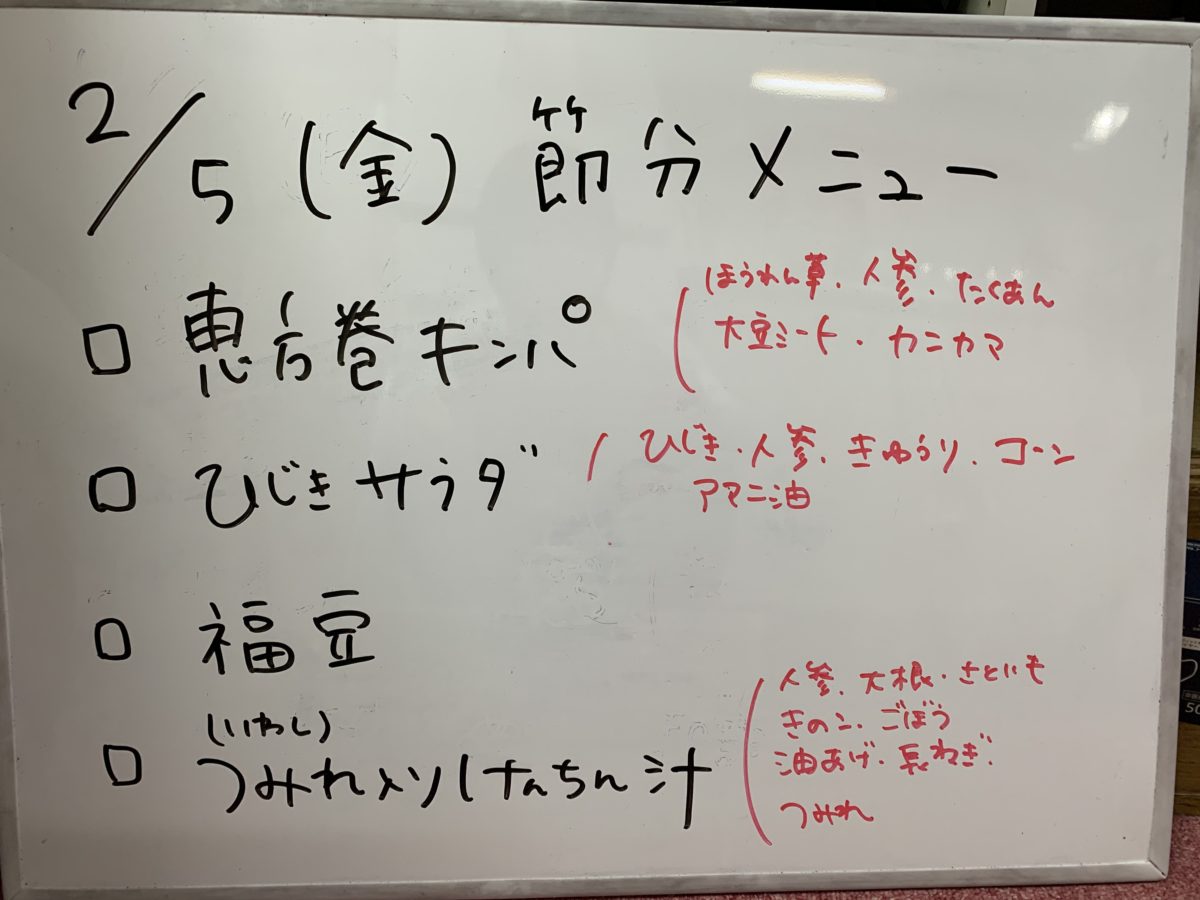 2/5(金) 節分メニュー
□ 恵方巻キンパ
ほうれん草、人参、たくあん
大豆ミート・カニカマ
□ ひじきサラダ
ひじき・人参、きゅうり、コーン
アマニ油
□ 福豆
(いわし)
□ つみれメソけんちん汁
人参、大根・さといも
きのこ・ごぼう
油あげ・長ねぎ・
つみれ